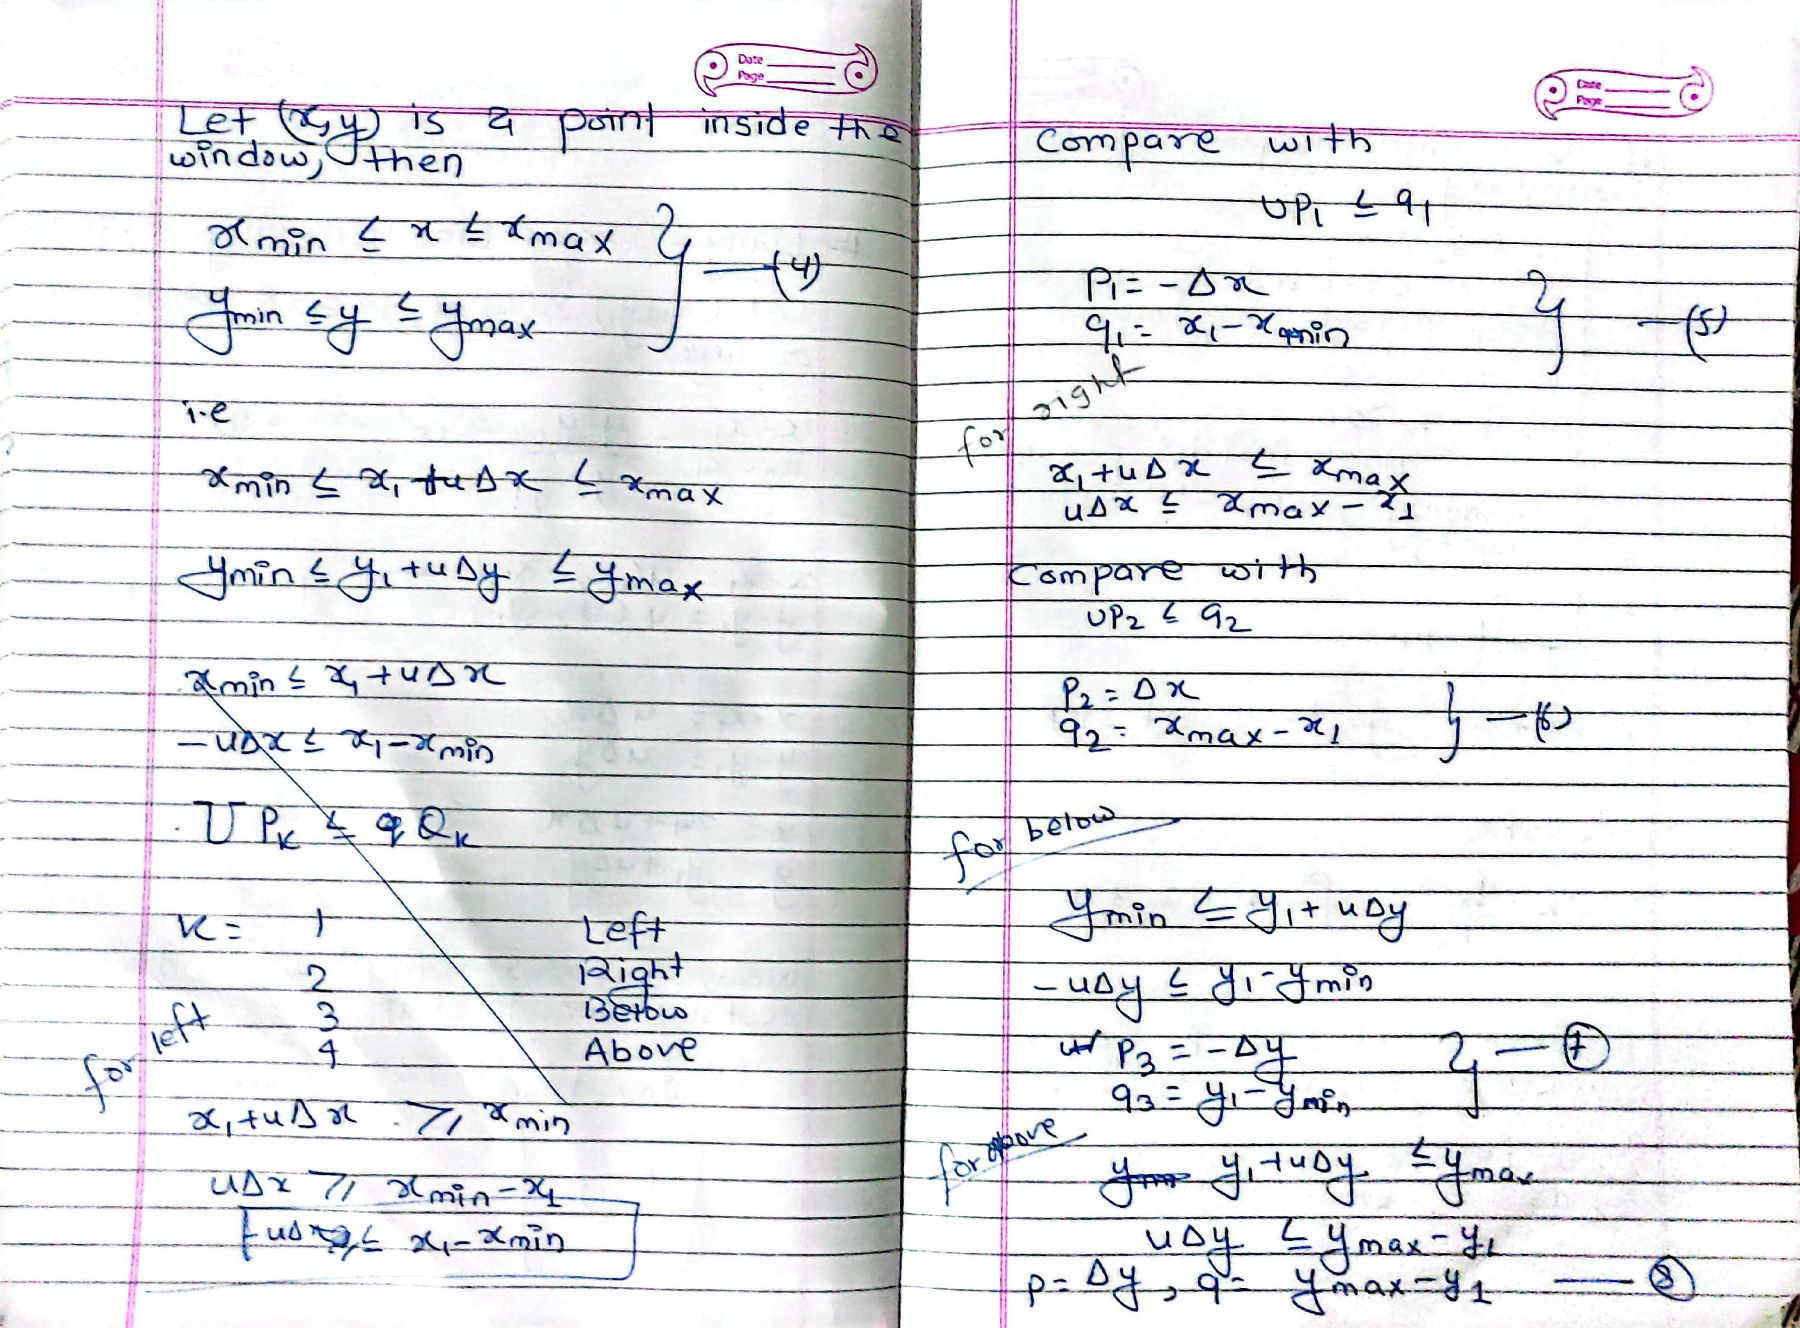 Date
Page
Let (x,y) is a point inside the
window, then
xmin ≤ x ≤ xmax
ymin ≤ y ≤ ymax } —(4)
i.e
xmin ≤ x1 + uΔx ≤ xmax
ymin ≤ y1 + uΔy ≤ ymax
xmin ≤ x1 + uΔx
-uΔx ≤ x1 - xmin
U PK ≤ q QK
K = 1 Left
2 Right
3 Below
4 Above
for left
x1 + uΔx ≥ xmin
uΔx ≥ xmin - x1
-uΔx ≤ x1 - xmin
Date
Page
Compare with
UP1 ≤ q1
P1 = -Δx
q1 = x1 - xmin } —(5)
for right
x1 + uΔx ≤ xmax
uΔx ≤ xmax - x1
Compare with
UP2 ≤ q2
P2 = Δx
q2 = xmax - x1 } —(6)
for below
ymin ≤ y1 + uΔy
-uΔy ≤ y1 - ymin
P3 = -Δy
q3 = y1 - ymin } — 7
for above
y1 + uΔy ≤ ymax
uΔy ≤ ymax - y1
p = Δy, q = ymax - y1 — 8